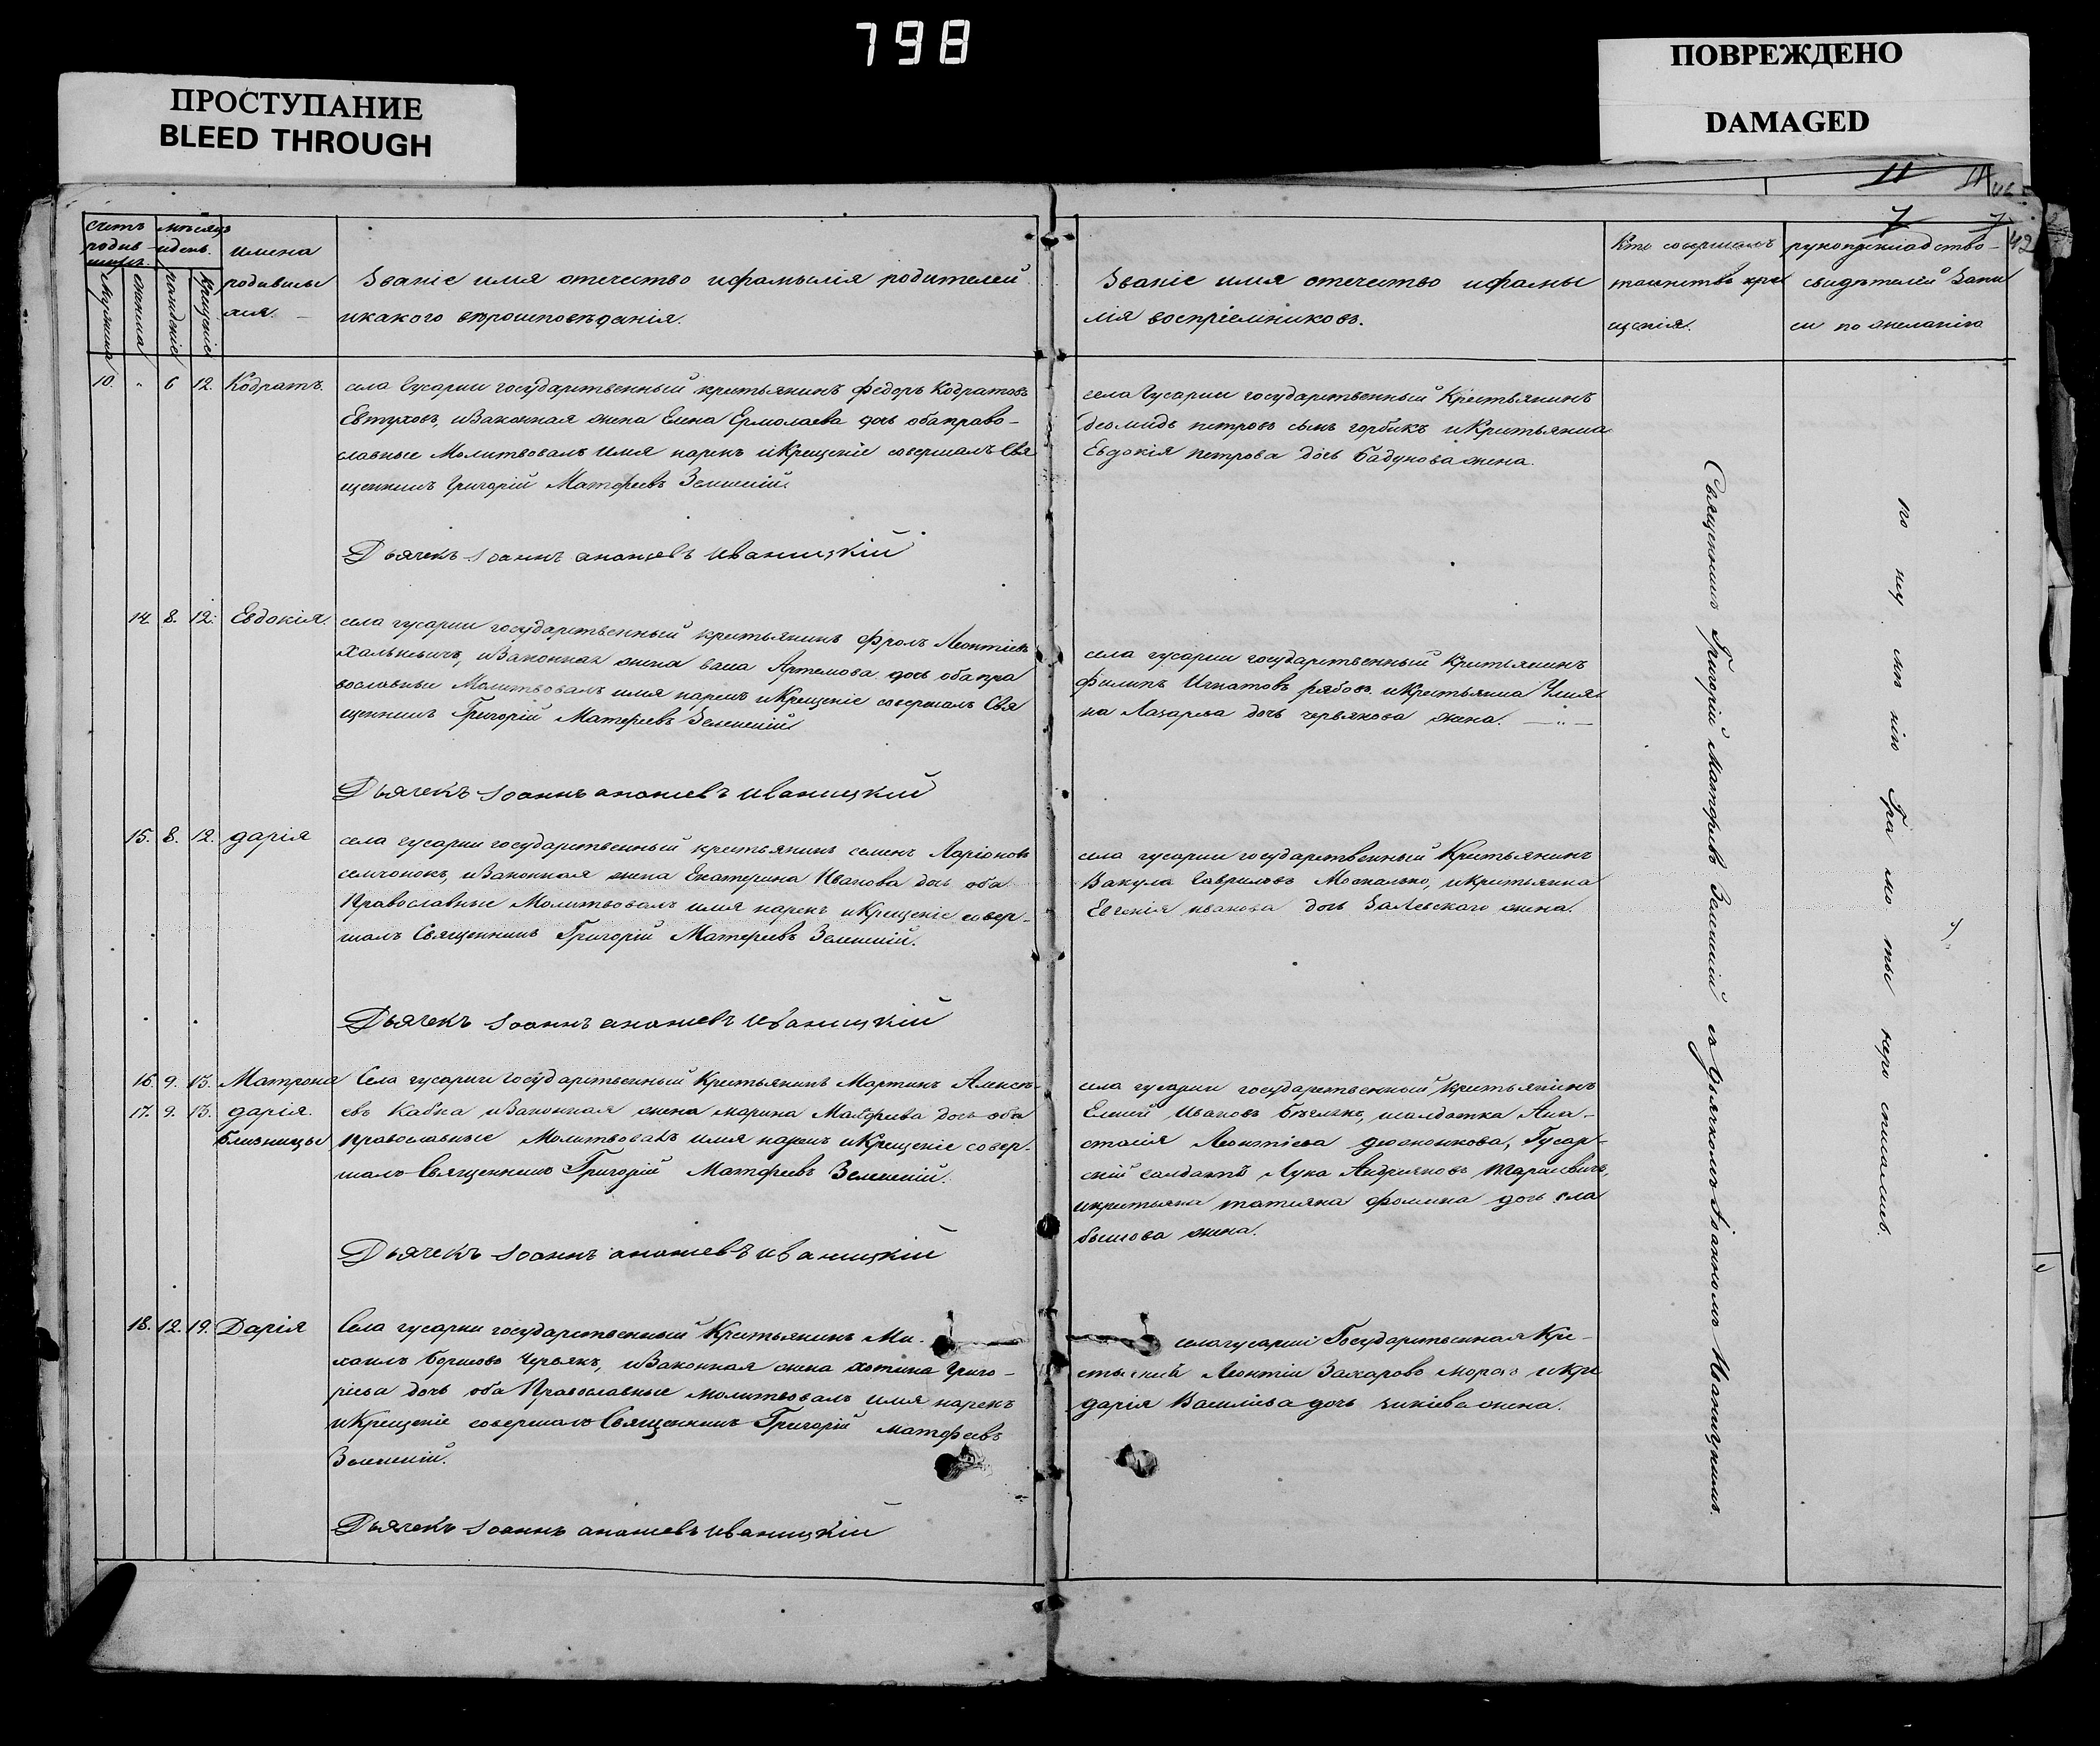 798
ПРОСТУПАНИЕ
BLEED THROUGH
ПОВРЕЖДЕНО
DAMAGED
11
7
42
счетъ
родив
шихъ.
мѣсяцъ
и день.
мужеска
женска
рожденіе
крещеніе
имена
родивших
ся.
Званіе имя отечество и фамылія родителей
и какого вѣроисповѣданія.
Званіе имя отечество и фамы
лія воспріемниковъ.
Кто совершалъ
таинство кре
щенія.
рукоприкладство
свидѣтелей запи
си по желанію
10. „ 6 12. Кодратъ.
села Гусарки государственный крестьянинъ федоръ Кодратовъ
Евтуховъ, и законная жена Елена Ермолаева дочь оба право-
славные Молитвовалъ имя нарекъ и Крещеніе совершалъ Свя
щенникъ Григорій Матфеевъ Зеленскій.
Дьячекъ Іоаннъ ананіевъ иваницкій
села Гусарки государственный Крестьянинъ
деомидъ петровъ сынъ горбикъ и Крестьянка
Евдокія петрова дочь бадунова жена.
14. 8. 12. Евдокія.
села гусарки государственный крестьянинъ фролъ Леонтіевъ
Халькевичъ, и Законная жена васа Артемова дочь оба пра
вославные Молитвовалъ имя нарекъ и Крещеніе совершалъ Свя
щенникъ Григорій Матфеевъ Зеленскій
Дьячекъ Іоаннъ ананіевъ иваницкій
села гусарки государственный Крестьянинъ
Филипъ Игнатовъ рябовъ и Крестьянка Улия
на Лазарева дочь червякова жена. — „ —
15. 8. 12. дарія
села гусарки государственный крестьянинъ семенъ Ларіоновъ
семчонокъ, и Законная жена Екатерина Иванова дочь оба
Православные Молитвовалъ имя нарекъ и Крещеніе совер-
шалъ Священникъ Григорій Матфеевъ Зеленскій.
Дьячекъ Іоаннъ ананіевъ иваницкій
села гусарки государственный Крестьянинъ
Вакула Гавриловъ Москалько, и крестьянка
Евгенія иванова дочь Залевскаго жена.
16. 9. 13. Матрона
17. 9. 13. дарія.
близницы
Села гусарки Государственный Крестьянинъ Мартинъ Алексе-
евъ Кабка и Законная жена марина Матфеева дочь оба
православные Молитвовалъ имя нарекъ и Крещеніе совер-
шалъ Священникъ Григорій Матфеевъ Зеленскій.
Дьячекъ Іоаннъ ананіевъ иваницкій
села гусарки государственный крестьянинъ
Елисей Ивановъ солдатка Ана-
стасія Леонтіева Гусар-
скій солдатъ Лука Андріяновъ Тарасевичъ,
и крестьянка татияна фомина дочь сла
бышова жена.
18. 12. 19. Дарія
Села гусарки государственный Крестьянинъ Ми-
хаилъ борисовъ Червякъ, и Законная жена хотина Григо-
ріева дочь оба Православные молитвовалъ имя нарекъ
и Крещеніе совершалъ Священникъ Григорій матфеевъ
Зеленскій.
Дьячекъ Іоаннъ ананіевъ иваницкій
села гусарки Государственная Кре-
Леонтій Захаровъ морозъ и кре
дарія Василіева дочь зикіева жена.
Священникъ Григорій Матфеевъ Зеленскій съ Дьячкомъ Іоанномъ Иваницкимъ.
по неу мѣ нію Гра мо ты неро списались.